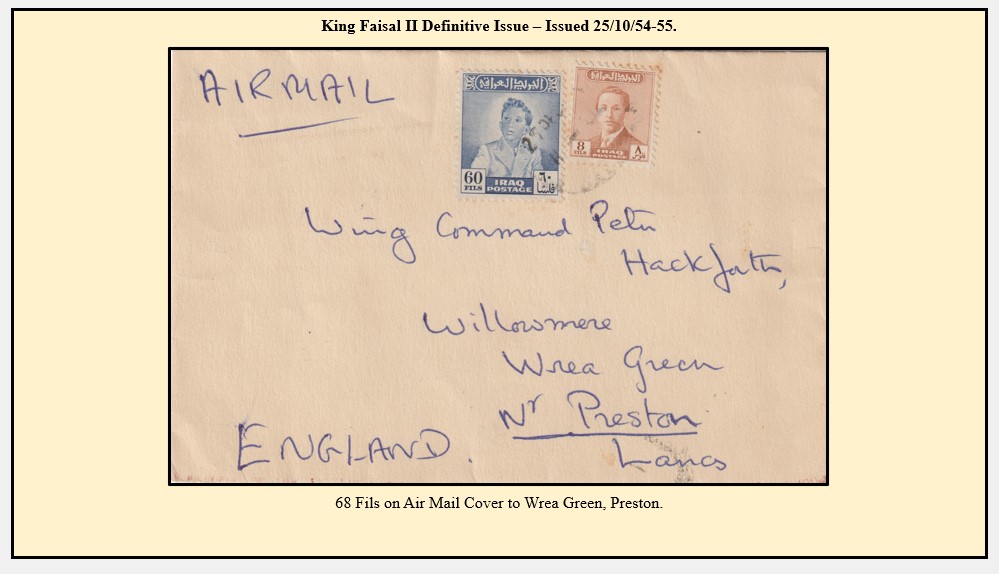 King Faisal II Definitive Issue – Issued 25/10/54-55.
AIRMAIL
60
FILS
IRAQ
POSTAGE
٦٠
فلسًا
8
FILS
IRAQ
POSTAGE
٨
Wing Command Peter
Hackforth,
Willowmere
Wrea Green
Nr Preston
Lancs
ENGLAND.
68 Fils on Air Mail Cover to Wrea Green, Preston.